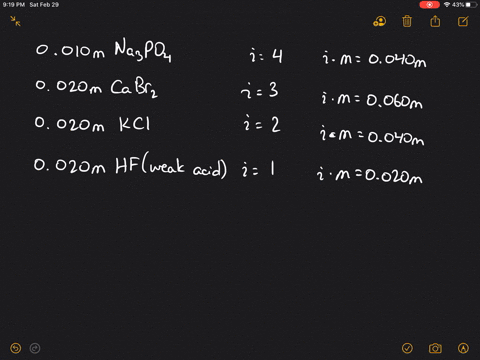 9:19 PM Sat Feb 29 43%
0.010m Na3PO4 i=4 i·m=0.040m
0.020m CaBr2 i=3 i·m=0.060m
0.020m KCl i=2 i·m=0.040m
0.020m HF(weak acid) i=1 i·m=0.020m